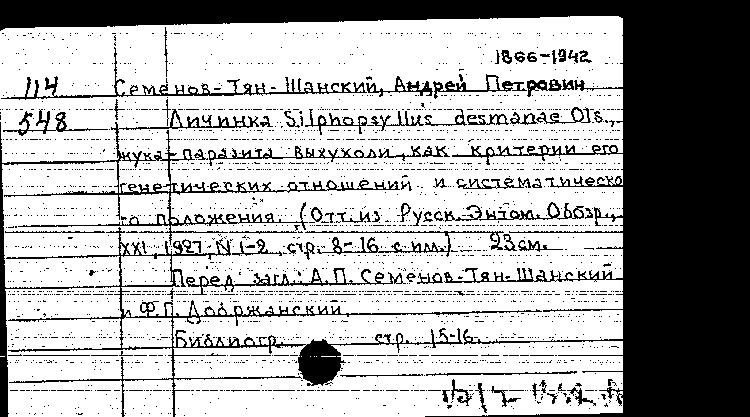 1866-1942
114 Семенов-Тян-Шанский, Андрей Петрович
548 Личинка Silphopsyllus desmanae Ols.,
жука-паразита выхухоли, как критерии его
генетических отношений и систематическо
го положения. (Отт. из Русск. Энтом. Обозр.,
XXI, 1927, N 1-2, стр. 8-16 с илл.) 23 см.
Перед загл.: А.П. Семенов-Тян-Шанский
и Ф.Г. Добржанский.
Библиогр. стр. 15-16.